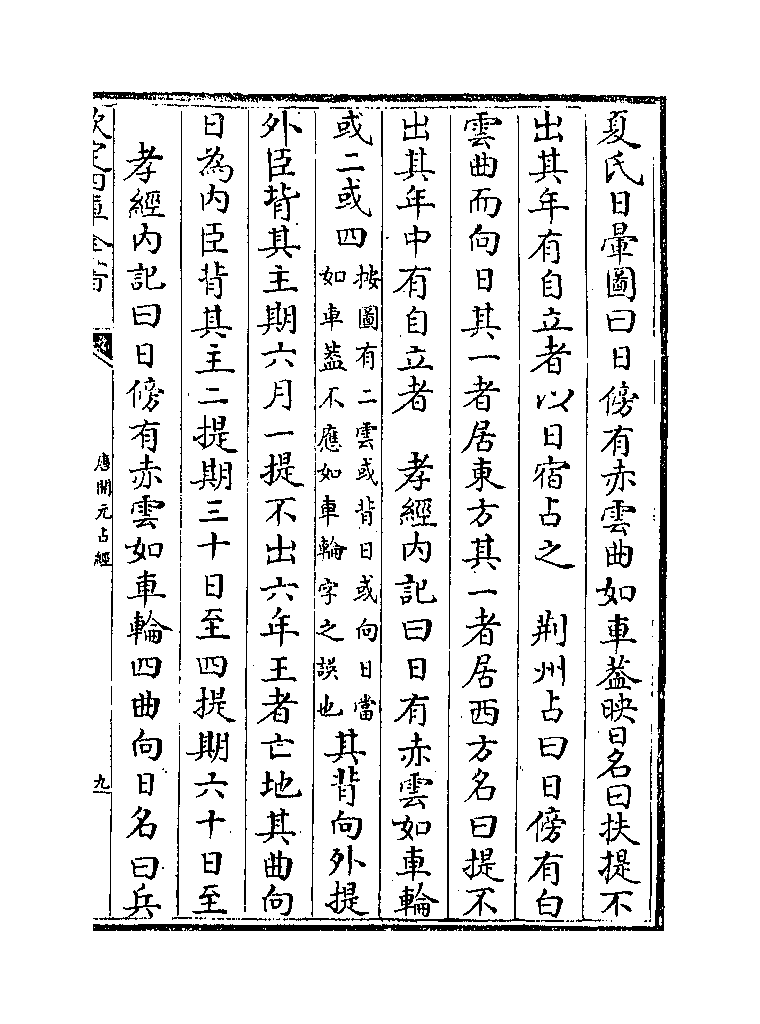 夏氏日暈圖曰日傍有赤雲曲如車葢映日名曰扶提不
出其年有自立者以日宿占之　荆州占曰日傍有白
雲曲而向日其一者居東方其一者居西方名曰提不
出其年中有自立者　孝經内記曰日有赤雲如車輪
或二或四按圖有二雲或背日或向日當如車葢不應如車輪字之誤也其背向外提
外臣背其主期六月一提不出六年王者亡地其曲向
日為内臣背其主二提期三十日至四提期六十日至
孝經内記曰日傍有赤雲如車輪四曲向日名曰兵
欽定四庫全書
唐開元占經
九